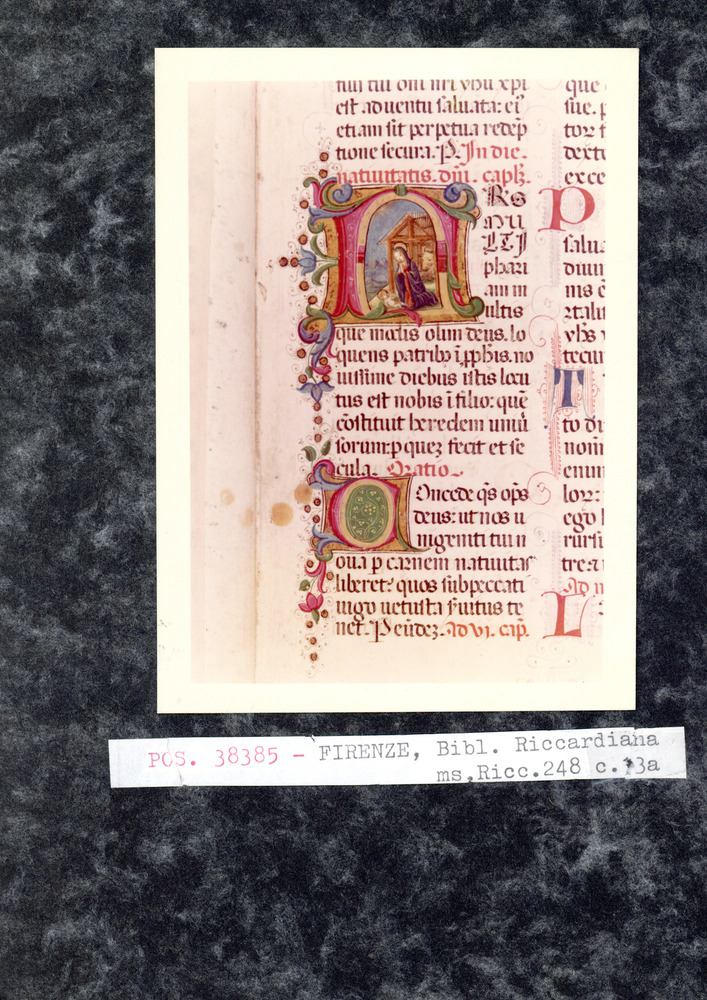 est adventu salvata: ei⁹
etiam sit perpetua redēp
tione secura. P. In die.
nativitatis. dn̄i. capl̄.
RS
MU
LTI
phari
am m
ultis
que modis olim deus. lo
quens patrib⁹ ī ꝓphis. no
vissime diebus istis locu
tus est nobis ī filio: quē
cōstituit heredem univ̄
sorum: p quez fecit et se
cula. Oratio.
Oncede qs̄ op̄s
deus: ut nos u
nigeniti tui n
ova p carnem nativitas
liberet: quos sub peccati
iugo vetusta s̄vitus te
net. P eūdez. Ad VI. cap̄.
que
sue. p
tor f
dexte
exce
P
salva
divi
T
to di
nom
enim
lor:
ego
rursu
Ad n
L
POS. 38385 - FIRENZE, Bibl. Riccardiana
ms,Ricc.248 c.13a